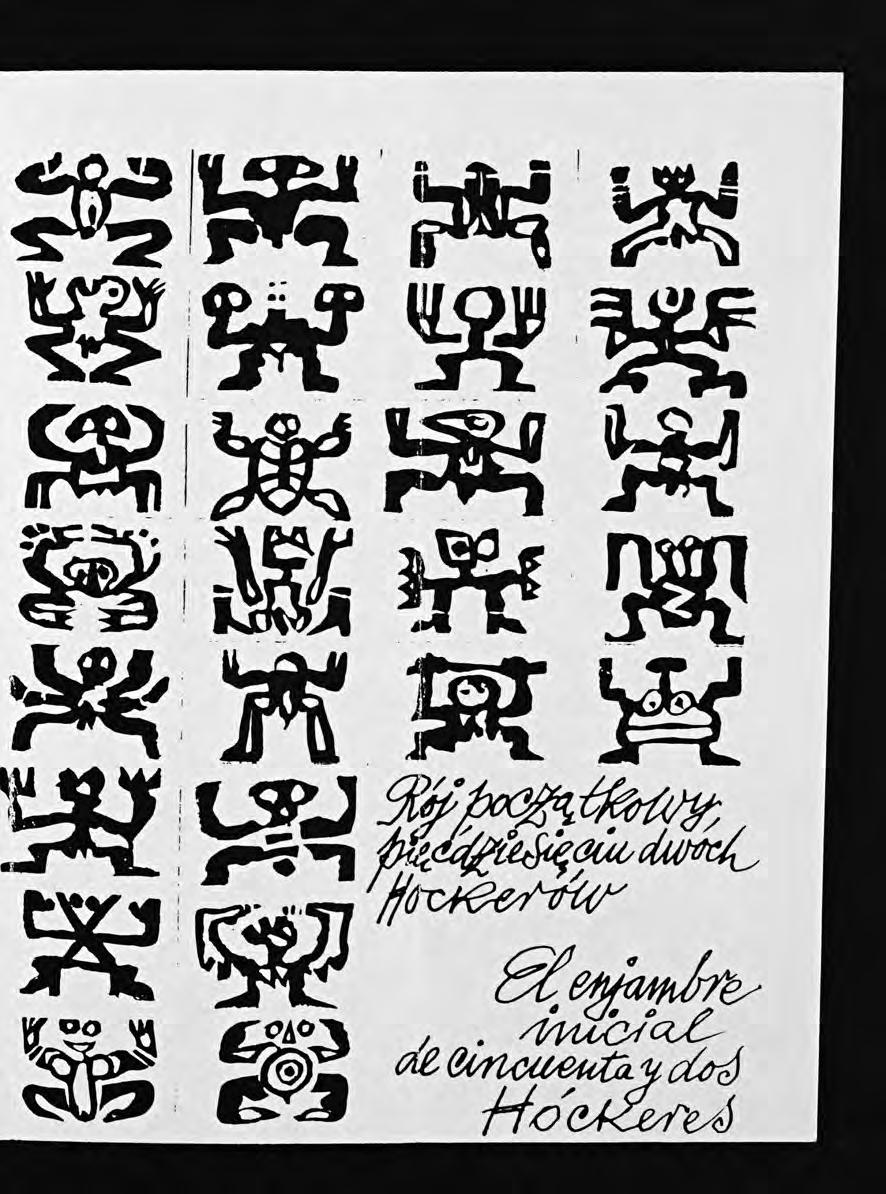 Rój początkowy,
pięćdziesięciu dwóch
Hockerów
El enjambre
inicial
de cincuenta y dos
Hóckeres